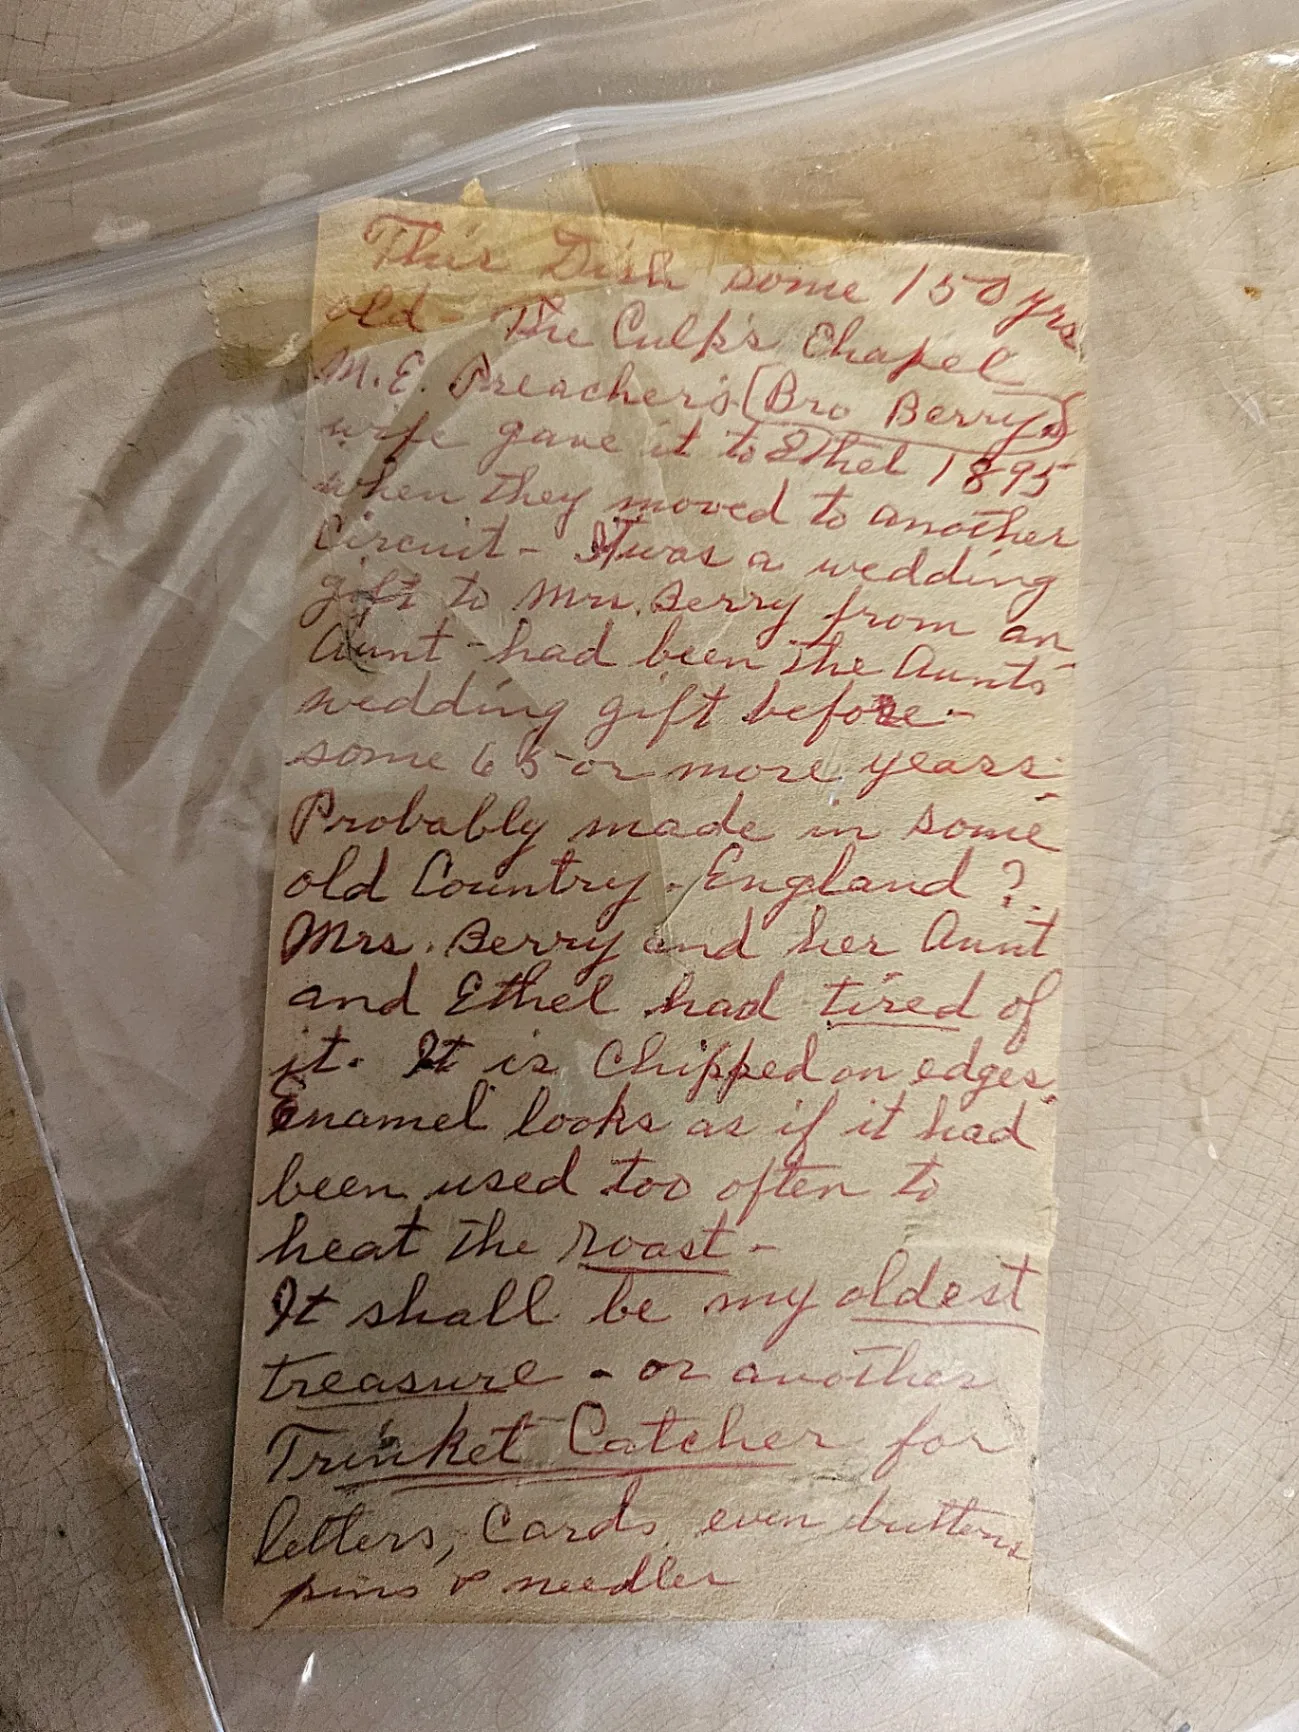 This Dish some 150 yrs
old - The Culp's Chapel
M.E. Preacher's (Bro Berry's)
wife gave it to Ethel 1895
when they moved to another
Circuit - It was a wedding
gift to Mrs. Berry from an
Aunt - had been the Aunts
wedding gift before -
some 65 or more years
Probably made in some
old Country - England ?
Mrs. Berry and her Aunt
and Ethel had tired of
it. It is Chipped on edges.
Enamel looks as if it had
been used too often to
heat the roast -
It shall be my oldest
treasure - or another
Trinket Catcher for
letters, Cards, even buttons
pins & needles